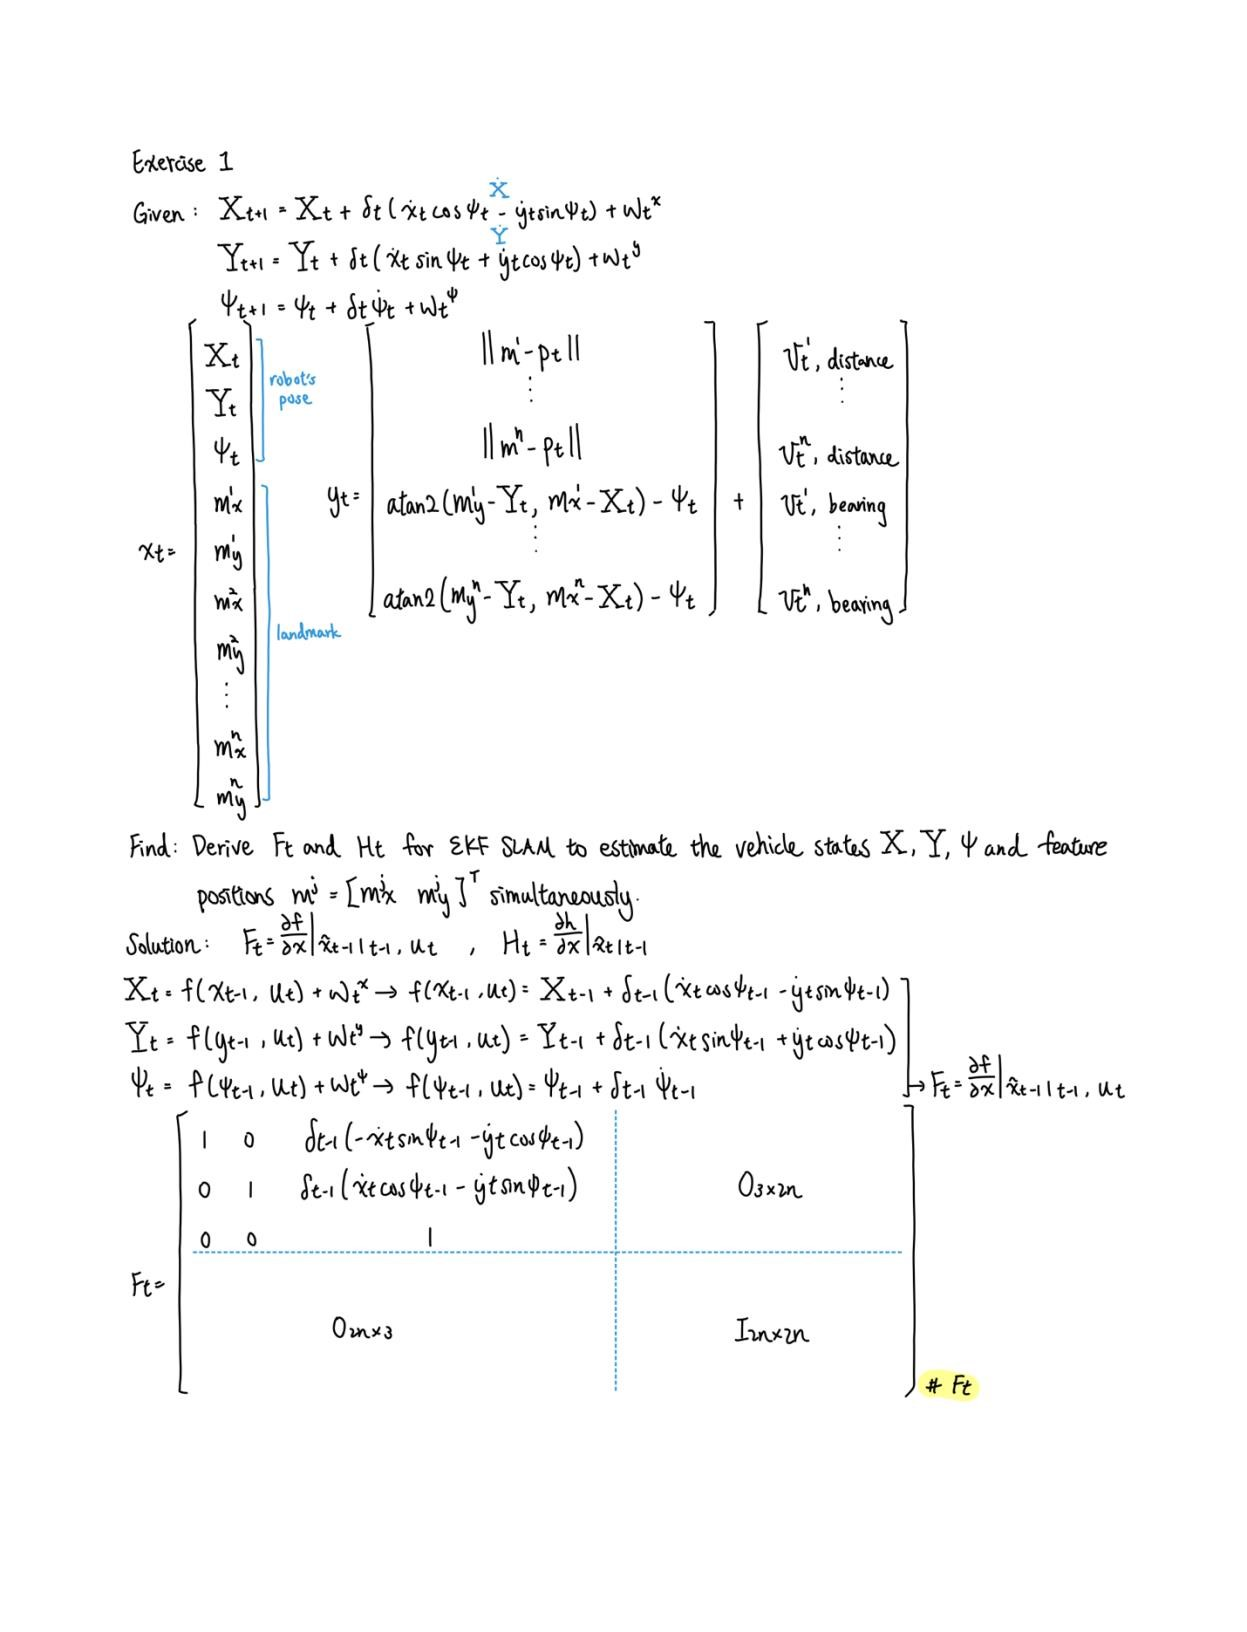 Exercise 1
Ẋ
Given : X_{t+1} = X_t + δt ( ẋ_t cos ψ_t - ẏ_t sin ψ_t ) + w_t^x
Ẏ
Y_{t+1} = Y_t + δt ( ẋ_t sin ψ_t + ẏ_t cos ψ_t ) + w_t^y
ψ_{t+1} = ψ_t + δt ψ̇_t + w_t^ψ
x_t = [ X_t
Y_t
ψ_t
m_x^1
m_y^1
m_x^2
m_y^2
⋮
m_x^n
m_y^n ]
robot's
pose
landmark
y_t = [ || m^1 - p_t ||
⋮
|| m^n - p_t ||
atan2 ( m_y^1 - Y_t , m_x^1 - X_t ) - ψ_t
⋮
atan2 ( m_y^n - Y_t , m_x^n - X_t ) - ψ_t ]
+ [ v_t^1 , distance
⋮
v_t^n , distance
v_t^1 , bearing
⋮
v_t^n , bearing ]
Find : Derive F_t and H_t for EKF SLAM to estimate the vehicle states X, Y, ψ and feature
positions m^j = [ m_x^j m_y^j ]^T simultaneously.
Solution : F_t = ∂f/∂x | x̂_{t-1|t-1}, u_t , H_t = ∂h/∂x | x̂_{t|t-1}
X_t = f(x_{t-1}, u_t) + w_t^x → f(x_{t-1}, u_t) = X_{t-1} + δ_{t-1} ( ẋ_t cos ψ_{t-1} - ẏ_t sin ψ_{t-1} )
Y_t = f(y_{t-1}, u_t) + w_t^y → f(y_{t-1}, u_t) = Y_{t-1} + δ_{t-1} ( ẋ_t sin ψ_{t-1} + ẏ_t cos ψ_{t-1} )
ψ_t = f(ψ_{t-1}, u_t) + w_t^ψ → f(ψ_{t-1}, u_t) = ψ_{t-1} + δ_{t-1} ψ̇_{t-1}
→ F_t = ∂f/∂x | x̂_{t-1|t-1}, u_t
1 0 δ_{t-1} ( -ẋ_t sin ψ_{t-1} - ẏ_t cos ψ_{t-1} )
0 1 δ_{t-1} ( ẋ_t cos ψ_{t-1} - ẏ_t sin ψ_{t-1} ) 0_{3×2n}
0 0 1
F_t =
0_{2n×3} I_{2n×2n}
# F_t